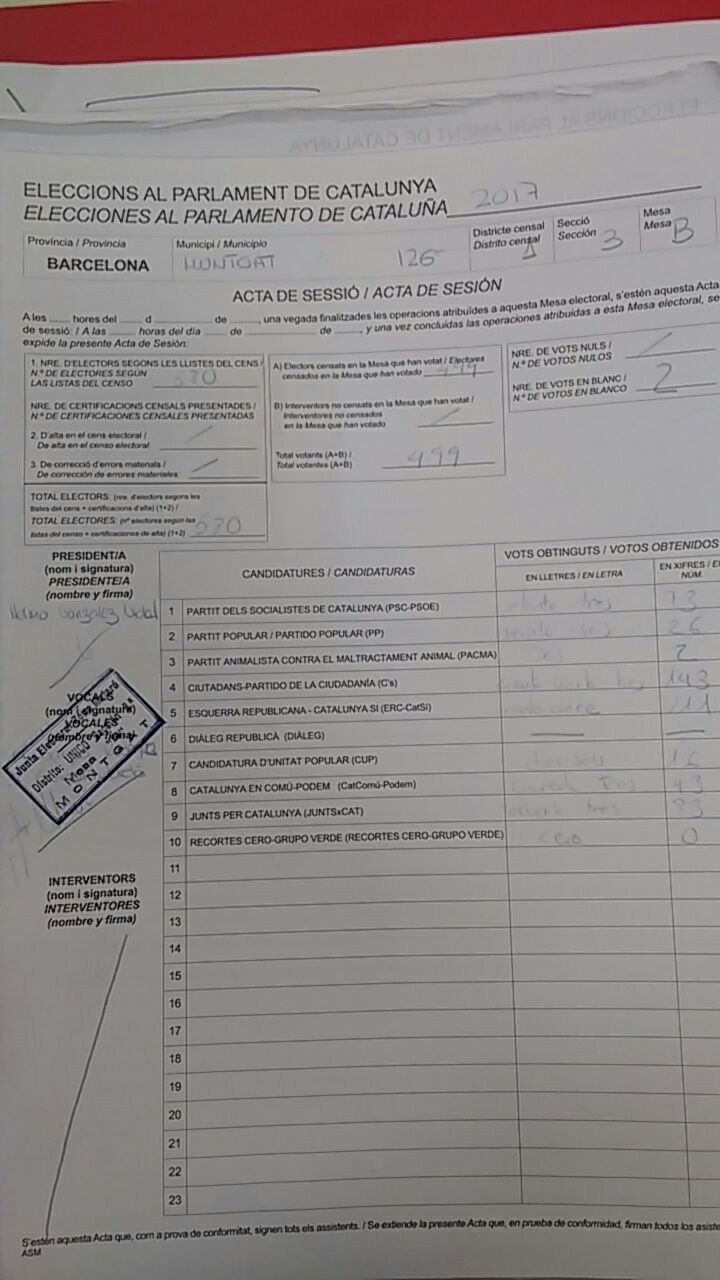 ELECCIONS AL PARLAMENT DE CATALUNYA
ELECCIONES AL PARLAMENTO DE CATALUÑA 2017
Província / Provincia
BARCELONA
Municipi / Municipio
MONTGAT 126
Districte censal
Distrito censal 1
Secció
Sección 3
Mesa
Mesa B
ACTA DE SESSIÓ / ACTA DE SESIÓN
A les ........ hores del ........ d ........ de ........, una vegada finalitzades les operacions atribuïdes a aquesta Mesa electoral, s'estén aquesta Acta
de sessió: / A las ........ horas del día ........ de ........ de ........, y una vez concluidas las operaciones atribuidas a esta Mesa electoral, se
expide la presente Acta de Sesión:
1. NRE. D'ELECTORS SEGONS LES LLISTES DEL CENS /
N.º DE ELECTORES SEGÚN
LAS LISTAS DEL CENSO 530
NRE. DE CERTIFICACIONS CENSALS PRESENTADES /
N.º DE CERTIFICACIONES CENSALES PRESENTADAS
2. D'alta en el cens electoral /
De alta en el censo electoral:
3. De correcció d'errors materials /
De corrección de errores materiales:
TOTAL ELECTORS: (nre. d'electors segons les
llistes del cens + certificacions d'alta) (1+2) /
TOTAL ELECTORES: (nº electores según las
listas del censo + certificaciones de alta) (1+2) 530
A) Electors censats en la Mesa que han votat / Electores
censados en la Mesa que han votado 499
B) Interventors no censats en la Mesa que han votat /
Interventores no censados
en la Mesa que han votado
Total votants (A+B) /
Total votantes (A+B) 499
NRE. DE VOTS NULS /
N.º DE VOTOS NULOS
NRE. DE VOTS EN BLANC /
N.º DE VOTOS EN BLANCO 2
PRESIDENT/A
(nom i signatura)
PRESIDENTE/A
(nombre y firma)
González Vidal
VOCALS
(nom i signatura)
VOCALES
Junta Electoral
Distrito: UNICO
Mesa
MONTGAT
INTERVENTORS
(nom i signatura)
INTERVENTORES
(nombre y firma)
CANDIDATURES / CANDIDATURAS
VOTS OBTINGUTS / VOTOS OBTENIDOS
EN LLETRES / EN LETRA
EN XIFRES / E
NÚM.
1 PARTIT DELS SOCIALISTES DE CATALUNYA (PSC-PSOE) tres 73
2 PARTIT POPULAR / PARTIDO POPULAR (PP) seis 26
3 PARTIT ANIMALISTA CONTRA EL MALTRACTAMENT ANIMAL (PACMA) Dos 2
4 CIUTADANS-PARTIDO DE LA CIUDADANÍA (C's) tres 143
5 ESQUERRA REPUBLICANA - CATALUNYA SI (ERC-CatSí) once 111
6 DIÀLEG REPUBLICÀ (DIÀLEG) — —
7 CANDIDATURA D'UNITAT POPULAR (CUP) dieciseis 16
8 CATALUNYA EN COMÚ-PODEM (CatComú-Podem) tres 43
9 JUNTS PER CATALUNYA (JUNTSxCAT) ochenta tres 83
10 RECORTES CERO-GRUPO VERDE (RECORTES CERO-GRUPO VERDE) cero 0
11
12
13
14
15
16
17
18
19
20
21
22
23
S'estén aquesta Acta que, com a prova de conformitat, signen tots els assistents. / Se extiende la presente Acta que, en prueba de conformidad, firman todos los asiste
ASM